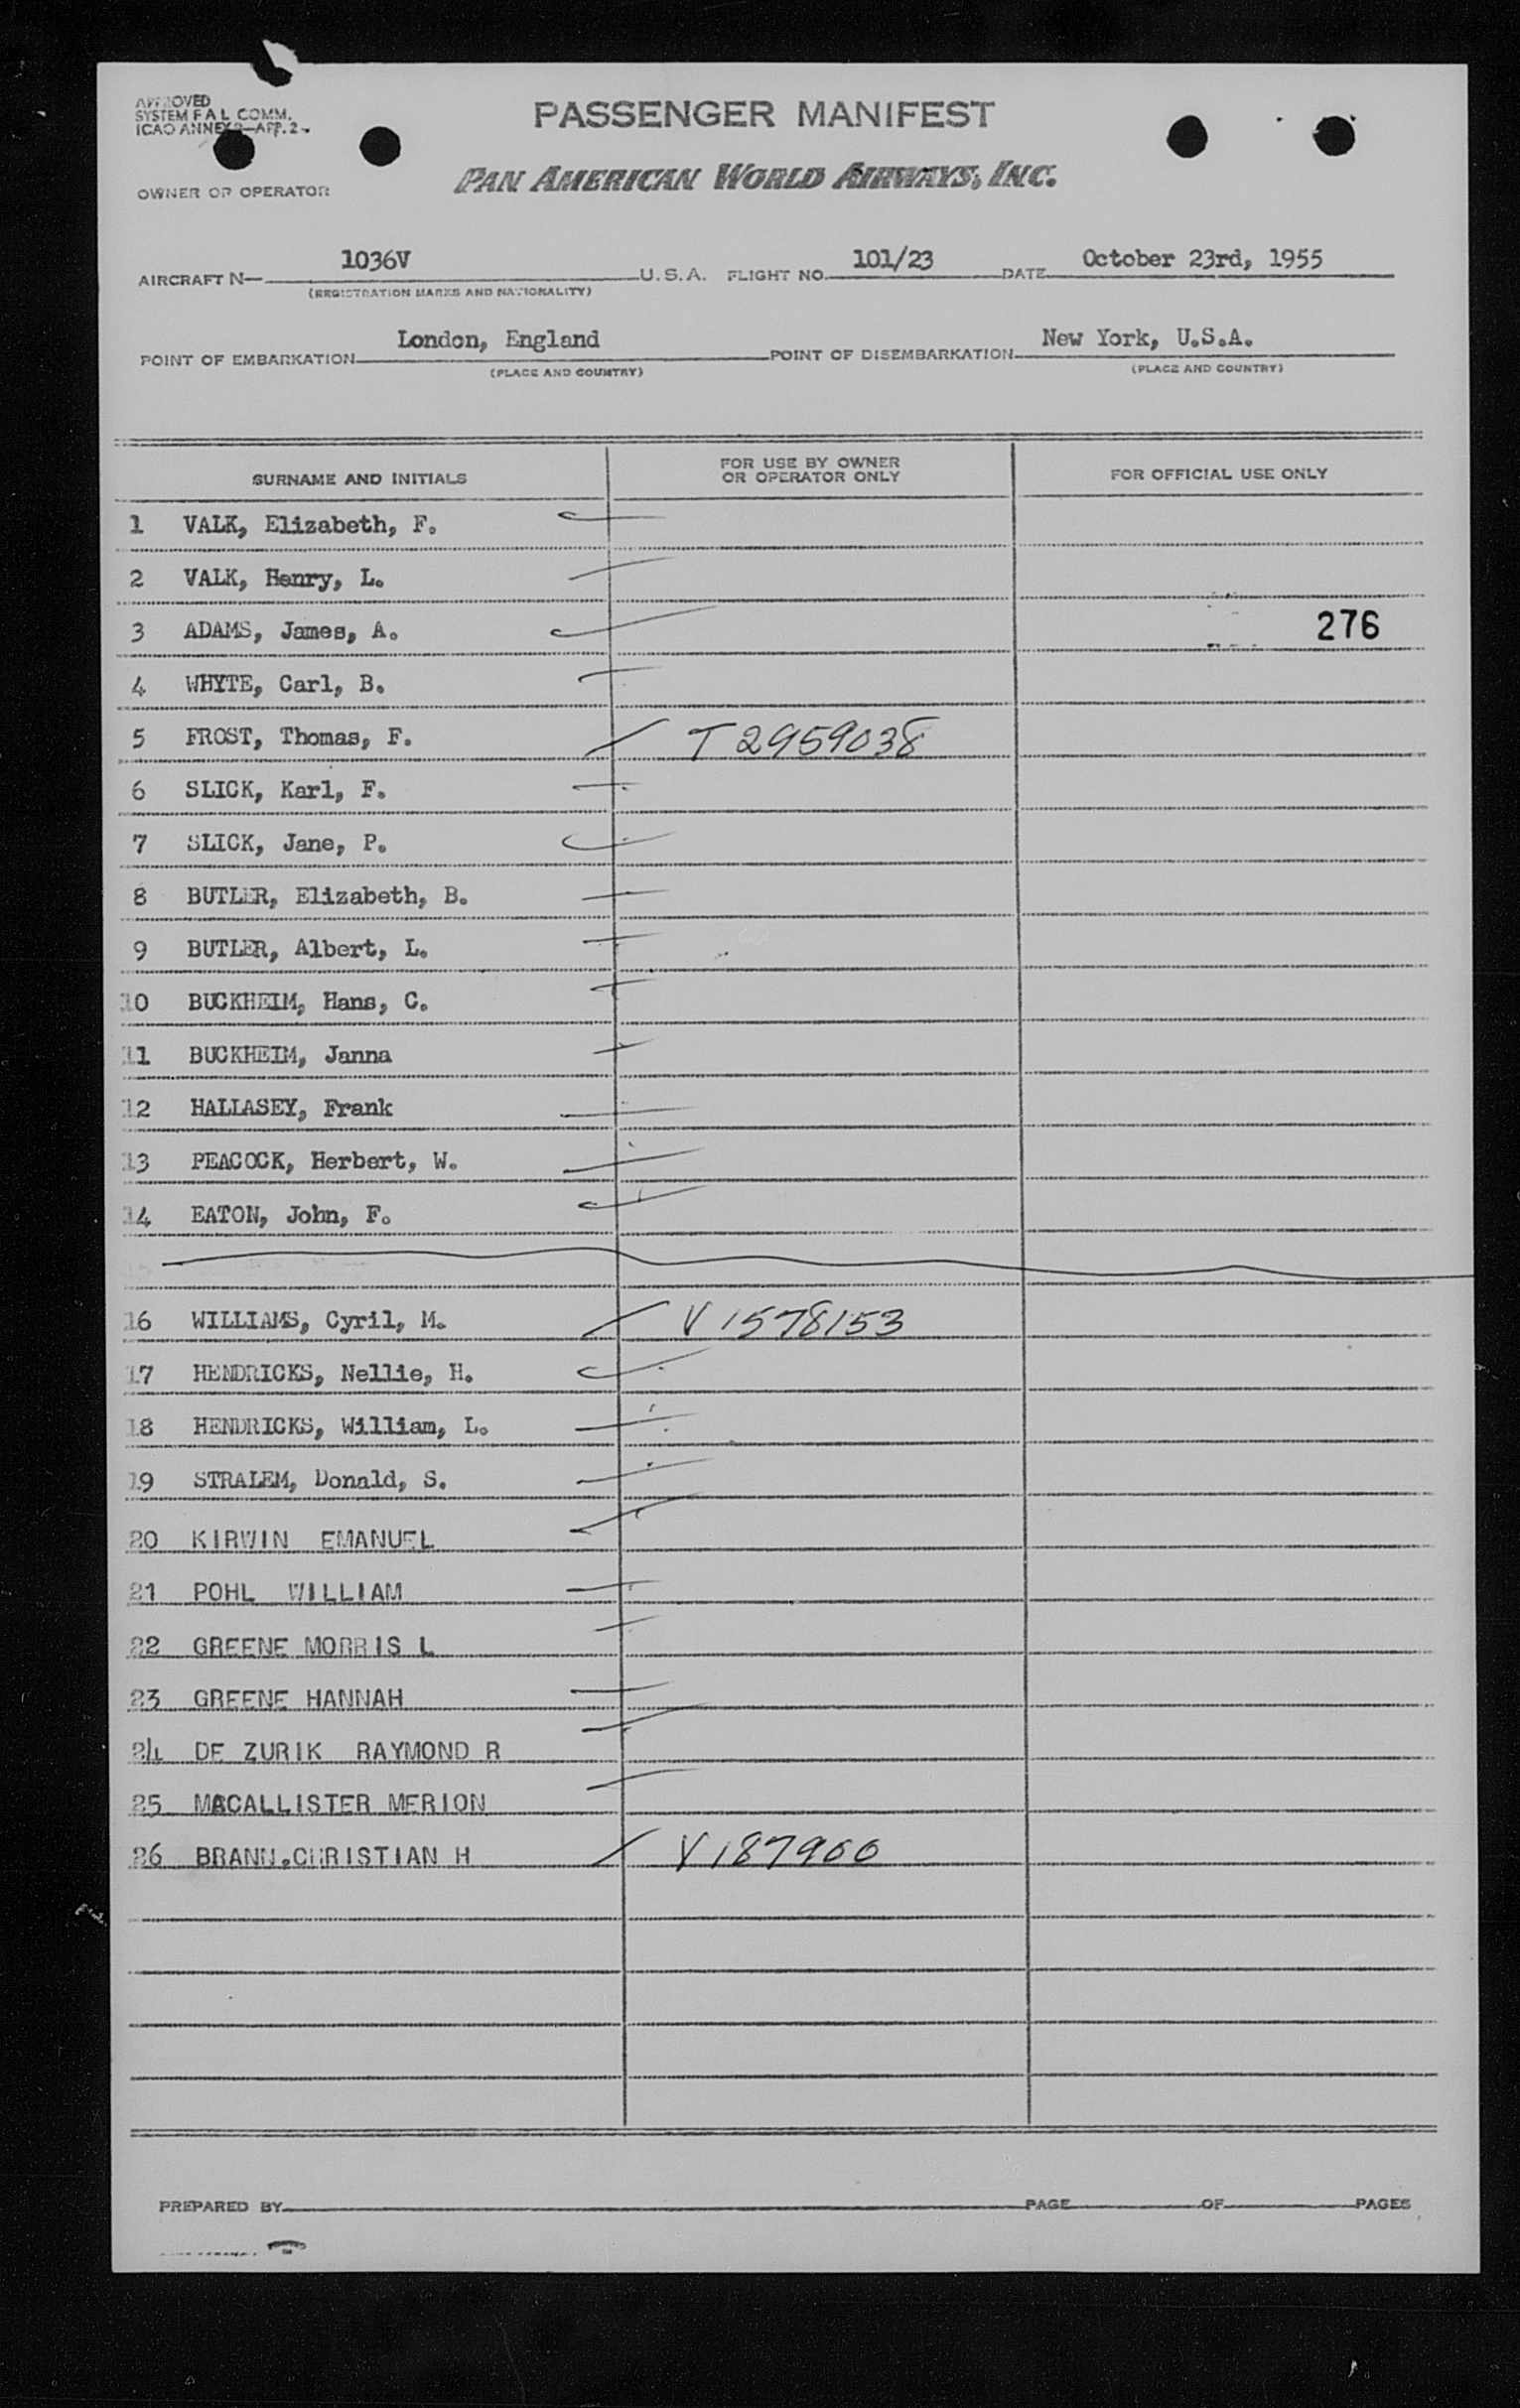 APPROVED
SYSTEM F A L COMM.
ICAO ANNEX 9—APP. 2
PASSENGER MANIFEST
OWNER OR OPERATOR
PAN AMERICAN WORLD AIRWAYS, INC.
AIRCRAFT N— 1036V U.S.A. FLIGHT NO. 101/23 DATE October 23rd, 1955
(REGISTRATION MARKS AND NATIONALITY)
POINT OF EMBARKATION London, England POINT OF DISEMBARKATION New York, U.S.A.
(PLACE AND COUNTRY) (PLACE AND COUNTRY)
SURNAME AND INITIALS FOR USE BY OWNER OR OPERATOR ONLY FOR OFFICIAL USE ONLY
1 VALK, Elizabeth, F.
2 VALK, Henry, L.
3 ADAMS, James, A. 276
4 WHYTE, Carl, B.
5 FROST, Thomas, F. T 2959038
6 SLICK, Karl, F.
7 SLICK, Jane, P.
8 BUTLER, Elizabeth, B.
9 BUTLER, Albert, L.
10 BUCKHEIM, Hans, C.
11 BUCKHEIM, Janna
12 HALLASEY, Frank
13 PEACOCK, Herbert, W.
14 EATON, John, F.
16 WILLIAMS, Cyril, M. V 1578153
17 HENDRICKS, Nellie, H.
18 HENDRICKS, William, L.
19 STRALEM, Donald, S.
20 KIRWIN EMANUEL
21 POHL WILLIAM
22 GREENE MORRIS L
23 GREENE HANNAH
24 DE ZURIK RAYMOND R
25 MACALLISTER MERION
26 BRANN.CHRISTIAN H V 187900
PREPARED BY PAGE OF PAGES